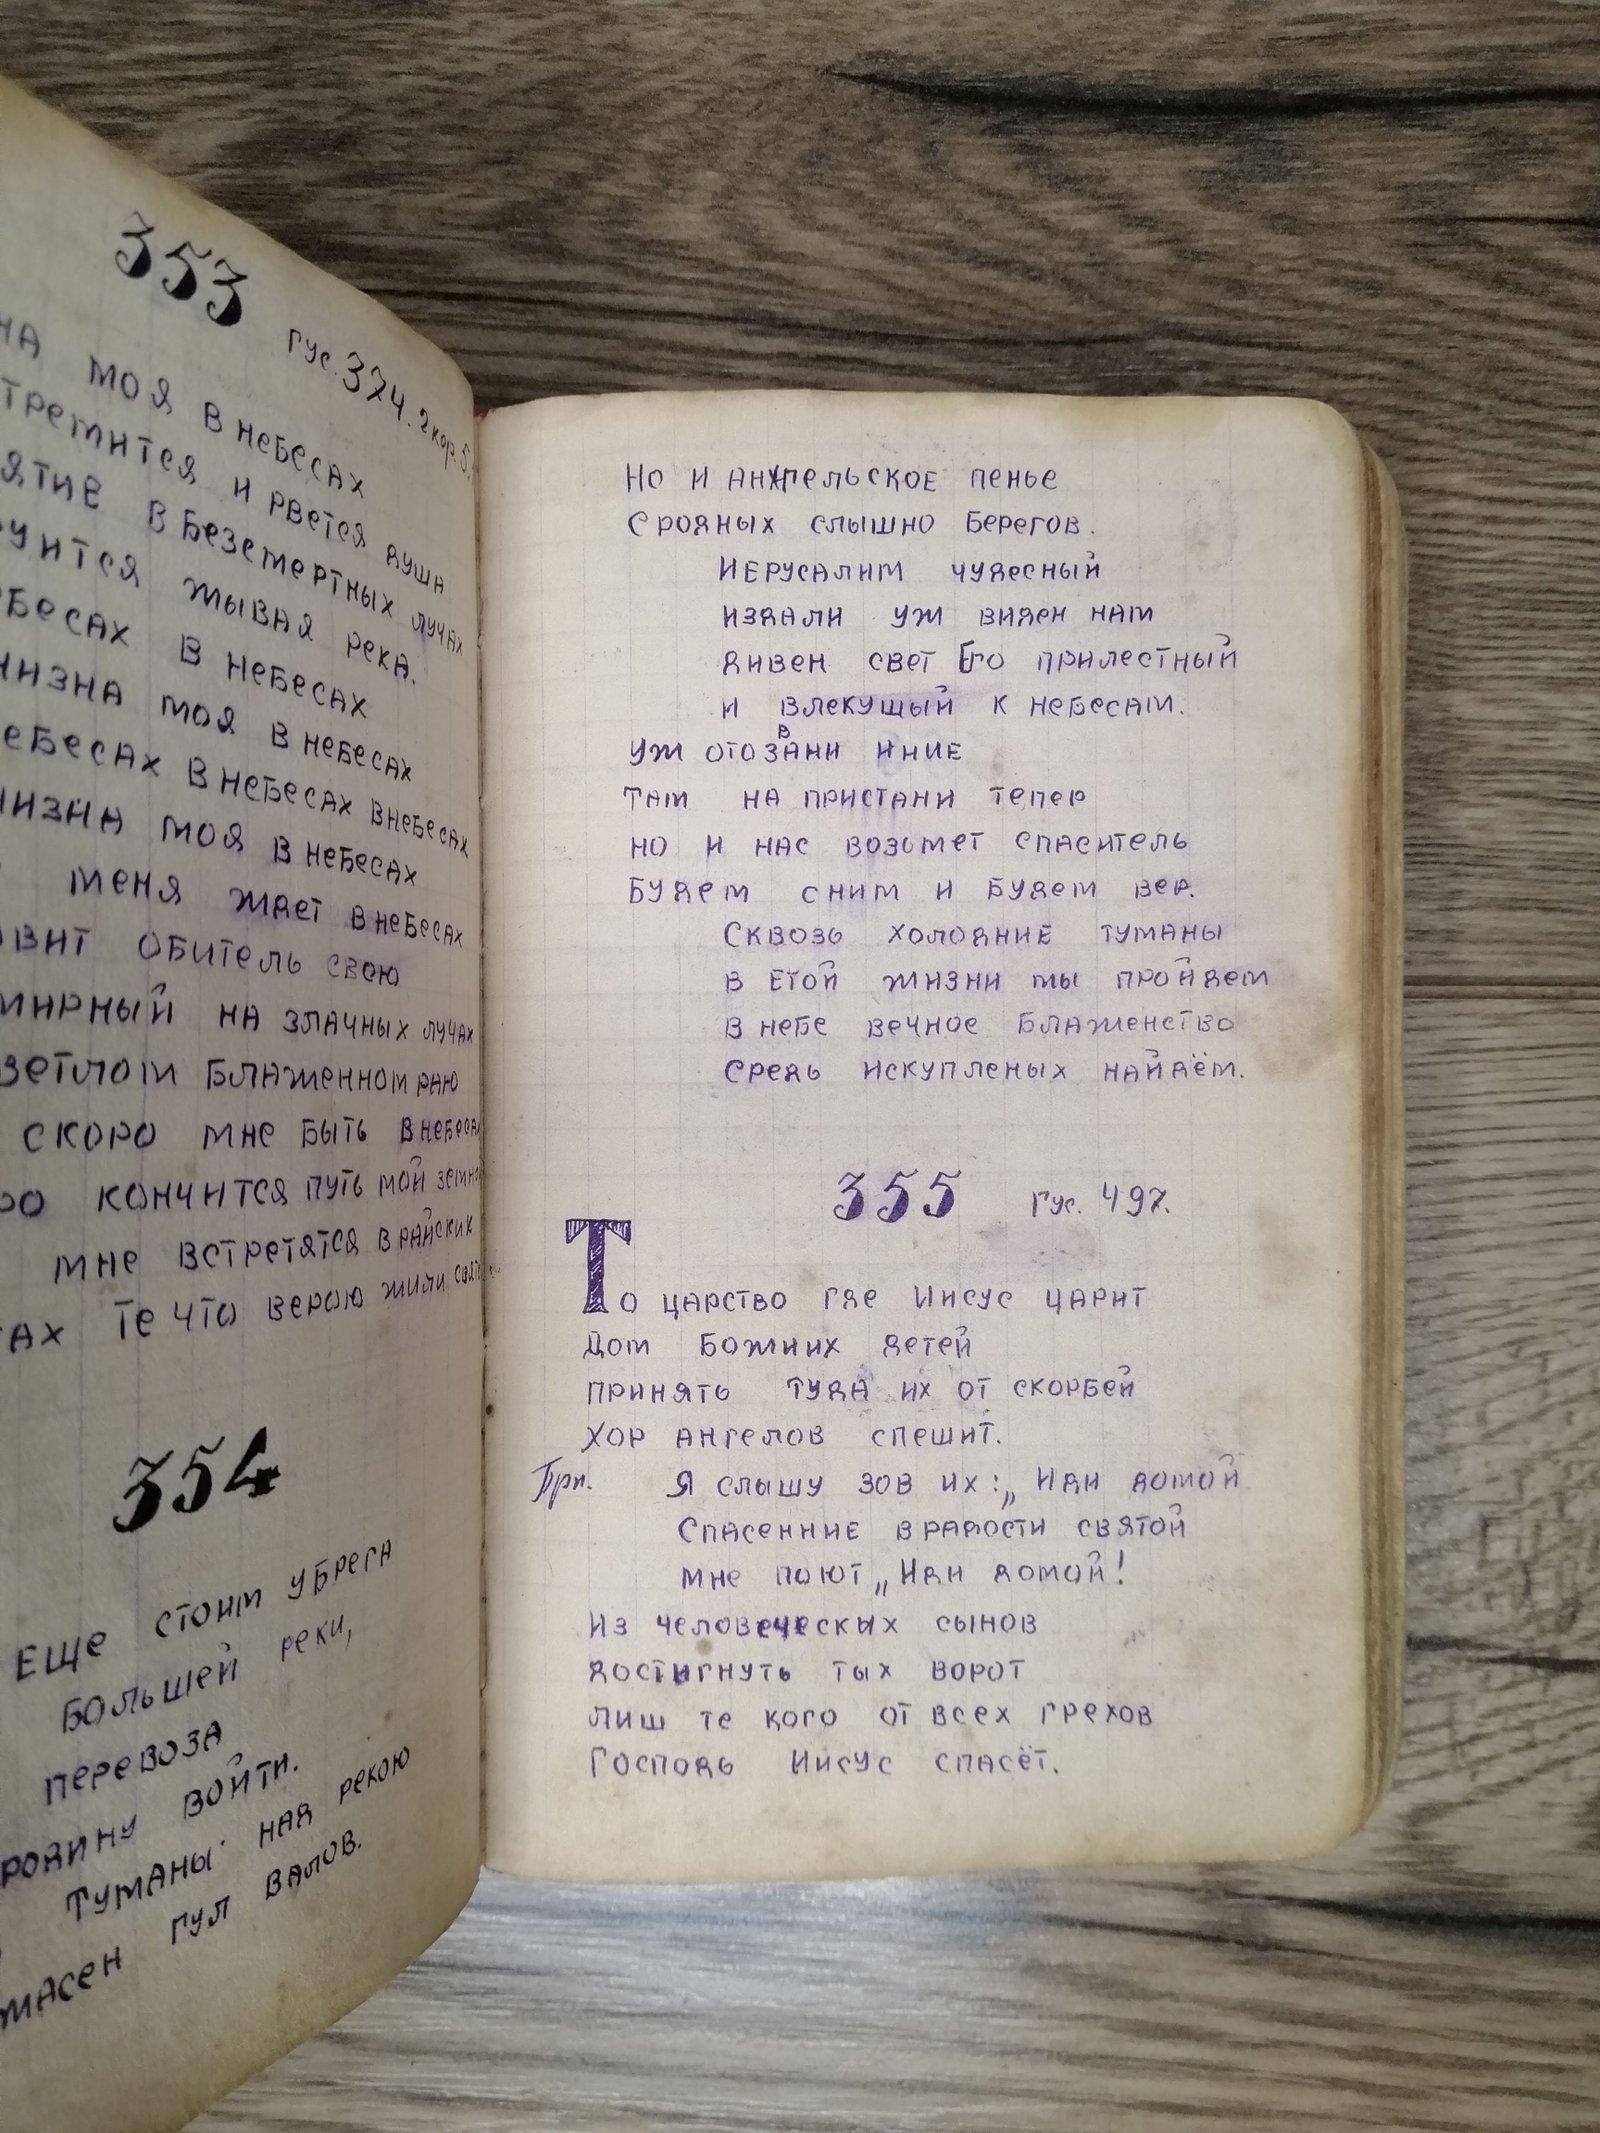 353
Гус. 374. 2 кор. 5.
НА МОЯ В НЕБЕСАХ
ТРЕМИТСЯ И РВЕТСЯ ДУША
ЯТИЕ В БЕЗСМЕРТНЫХ ЛУЧАХ
УИТСЯ ЖЫВАЯ РЕКА.
БЕСАХ В НЕБЕСАХ
ИЗНА МОЯ В НЕБЕСАХ
ЕБЕСАХ В НЕБЕСАХ В НЕБЕСАХ
ИЗНА МОЯ В НЕБЕСАХ
МЕНЯ ЖДЕТ В НЕБЕСАХ
ОВИТ ОБИТЕЛЬ СВОЮ
МИРНЫЙ НА ЗЛАЧНЫХ ЛУЧАХ
ВЕТЛОМ БЛАЖЕННОМ РАЮ
СКОРО МНЕ БЫТЬ В НЕБЕСАХ
РО КОНЧИТСЯ ПУТЬ МОЙ ЗЕМНО
МНЕ ВСТРЕТЯТСЯ В РАЙСКИХ
АХ ТЕ ЧТО ВЕРОЮ ЖИЛИ
354
ЕЩЕ СТОИМ У БРЕГА
БОЛЬШЕЙ РЕКИ,
ПЕРЕВОЗА
РОДИНУ ВОЙТИ.
ТУМАНЫ НАД РЕКОЮ
ЖАСЕН ГУЛ ВАЛОВ.
НО И АНГЕЛЬСКОЕ ПЕНЬЕ
С РОДНЫХ СЛЫШНО БЕРЕГОВ.
ИЕРУСАЛИМ ЧУДЕСНЫЙ
ИЗДАЛИ УЖ ВИДЕН НАМ
ДИВЕН СВЕТ ЕГО ПРИЛЕСТНЫЙ
И ВЛЕКУЩЫЙ К НЕБЕСАМ.
УЖ ОТОЗВАНИ ИНИЕ
ТАМ НА ПРИСТАНИ ТЕПЕР
НО И НАС ВОЗЬМЕТ СПАСИТЕЛЬ
БУДЕМ С НИМ И БУДЕМ ВЕР.
СКВОЗЬ ХОЛОДНИЕ ТУМАНЫ
В ЕТОЙ ЖИЗНИ МЫ ПРОЙДЕМ
В НЕБЕ ВЕЧНОЕ БЛАЖЕНСТВО
СРЕДЬ ИСКУПЛЕНЫХ НАЙДЁМ.
355 Гус. 497.
ТО ЦАРСТВО ГДЕ ИИСУС ЦАРИТ
ДОМ БОЖИИХ ДЕТЕЙ
ПРИНЯТЬ ТУДА ИХ ОТ СКОРБЕЙ
ХОР АНГЕЛОВ СПЕШИТ.
Прп. Я СЛЫШУ ЗОВ ИХ: „ИДИ ДОМОЙ
СПАСЕННИЕ В РАДОСТИ СВЯТОЙ
МНЕ ПОЮТ „ИДИ ДОМОЙ!
ИЗ ЧЕЛОВЕЧЕСКЫХ СЫНОВ
ДОСТИГНУТЬ ТЫХ ВОРОТ
ЛИШ ТЕ КОГО ОТ ВСЕХ ГРЕХОВ
ГОСПОДЬ ИИСУС СПАСЁТ.